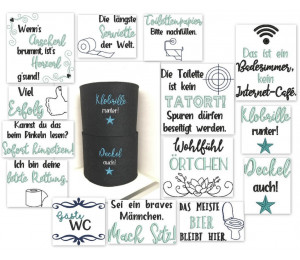 Wenn's
Arscherl
brummt, ist's
Herzerl
g'sund!
Die längste
Serviette
der Welt.
Toilettenpapier
Bitte nachfüllen.
Das ist ein
Badezimmer,
kein
Internet-Café.
Viel
Erfolg
Klobrille
runter!
Deckel
auch!
Die Toilette
ist kein
TATORT!
Spuren dürfen
beseitigt werden.
Klobrille
runter!
Kannst du das
beim Pinkeln lesen?
Sofort hinsetzen!
Wohlfühl
ÖRTCHEN
Deckel
auch!
Ich bin deine
letzte Rettung.
Gäste
WC
Sei ein braves
Männchen.
Mach Sitz!
DAS MEISTE
BIER
BLEIBT HIER.